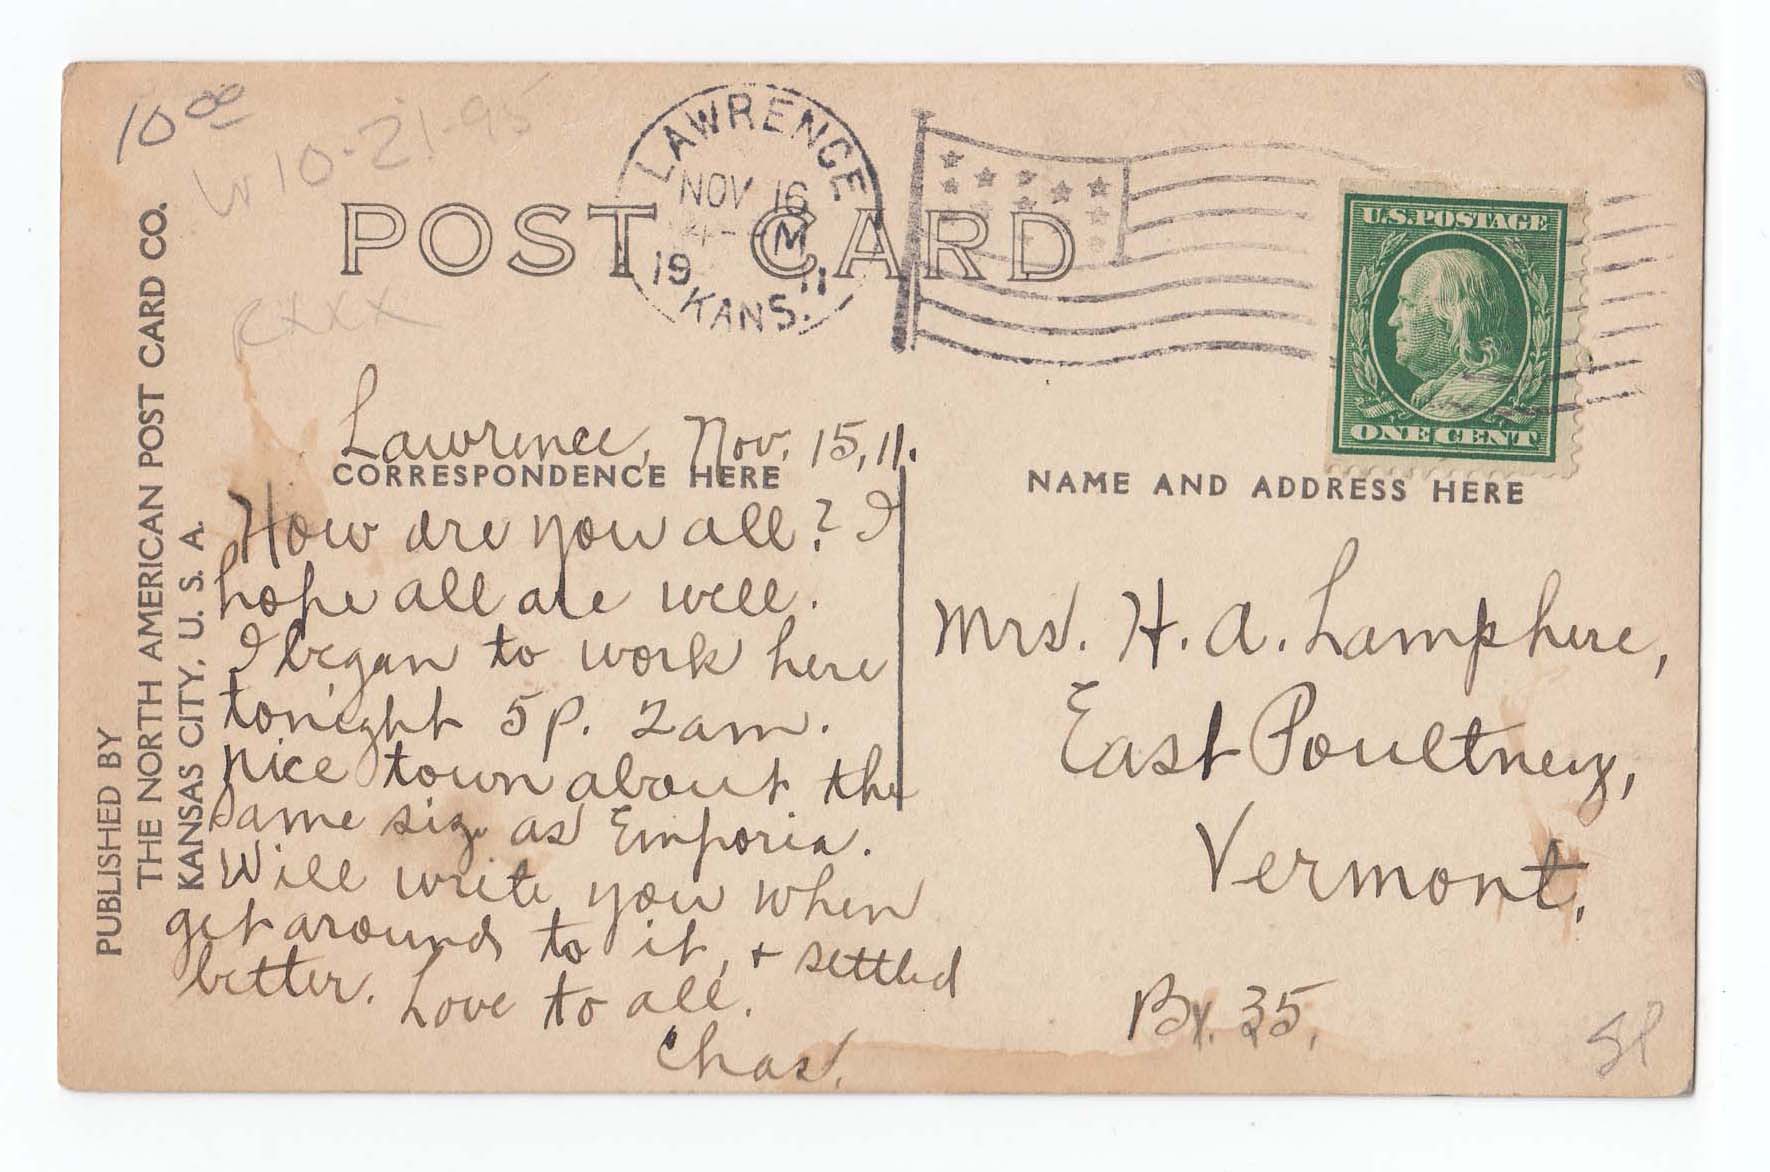 10 00
W 10-21-95
RXXX
POST CARD
LAWRENCE
NOV 16
4- M
19 11
KANS.
U.S. POSTAGE
ONE CENT
PUBLISHED BY
THE NORTH AMERICAN POST CARD CO.
KANSAS CITY, U. S. A.
Lawrence, Nov. 15, 11.
CORRESPONDENCE HERE
How are you all? I
hope all are well.
I began to work here
tonight 5 p. 2 am.
Nice town about the
same siz as Emporia.
Will write you when
get around to it, + settled
better. Love to all.
Chas.
NAME AND ADDRESS HERE
Mrs. H. A. Lamphere,
East Poultney,
Vermont.
Bx. 35,